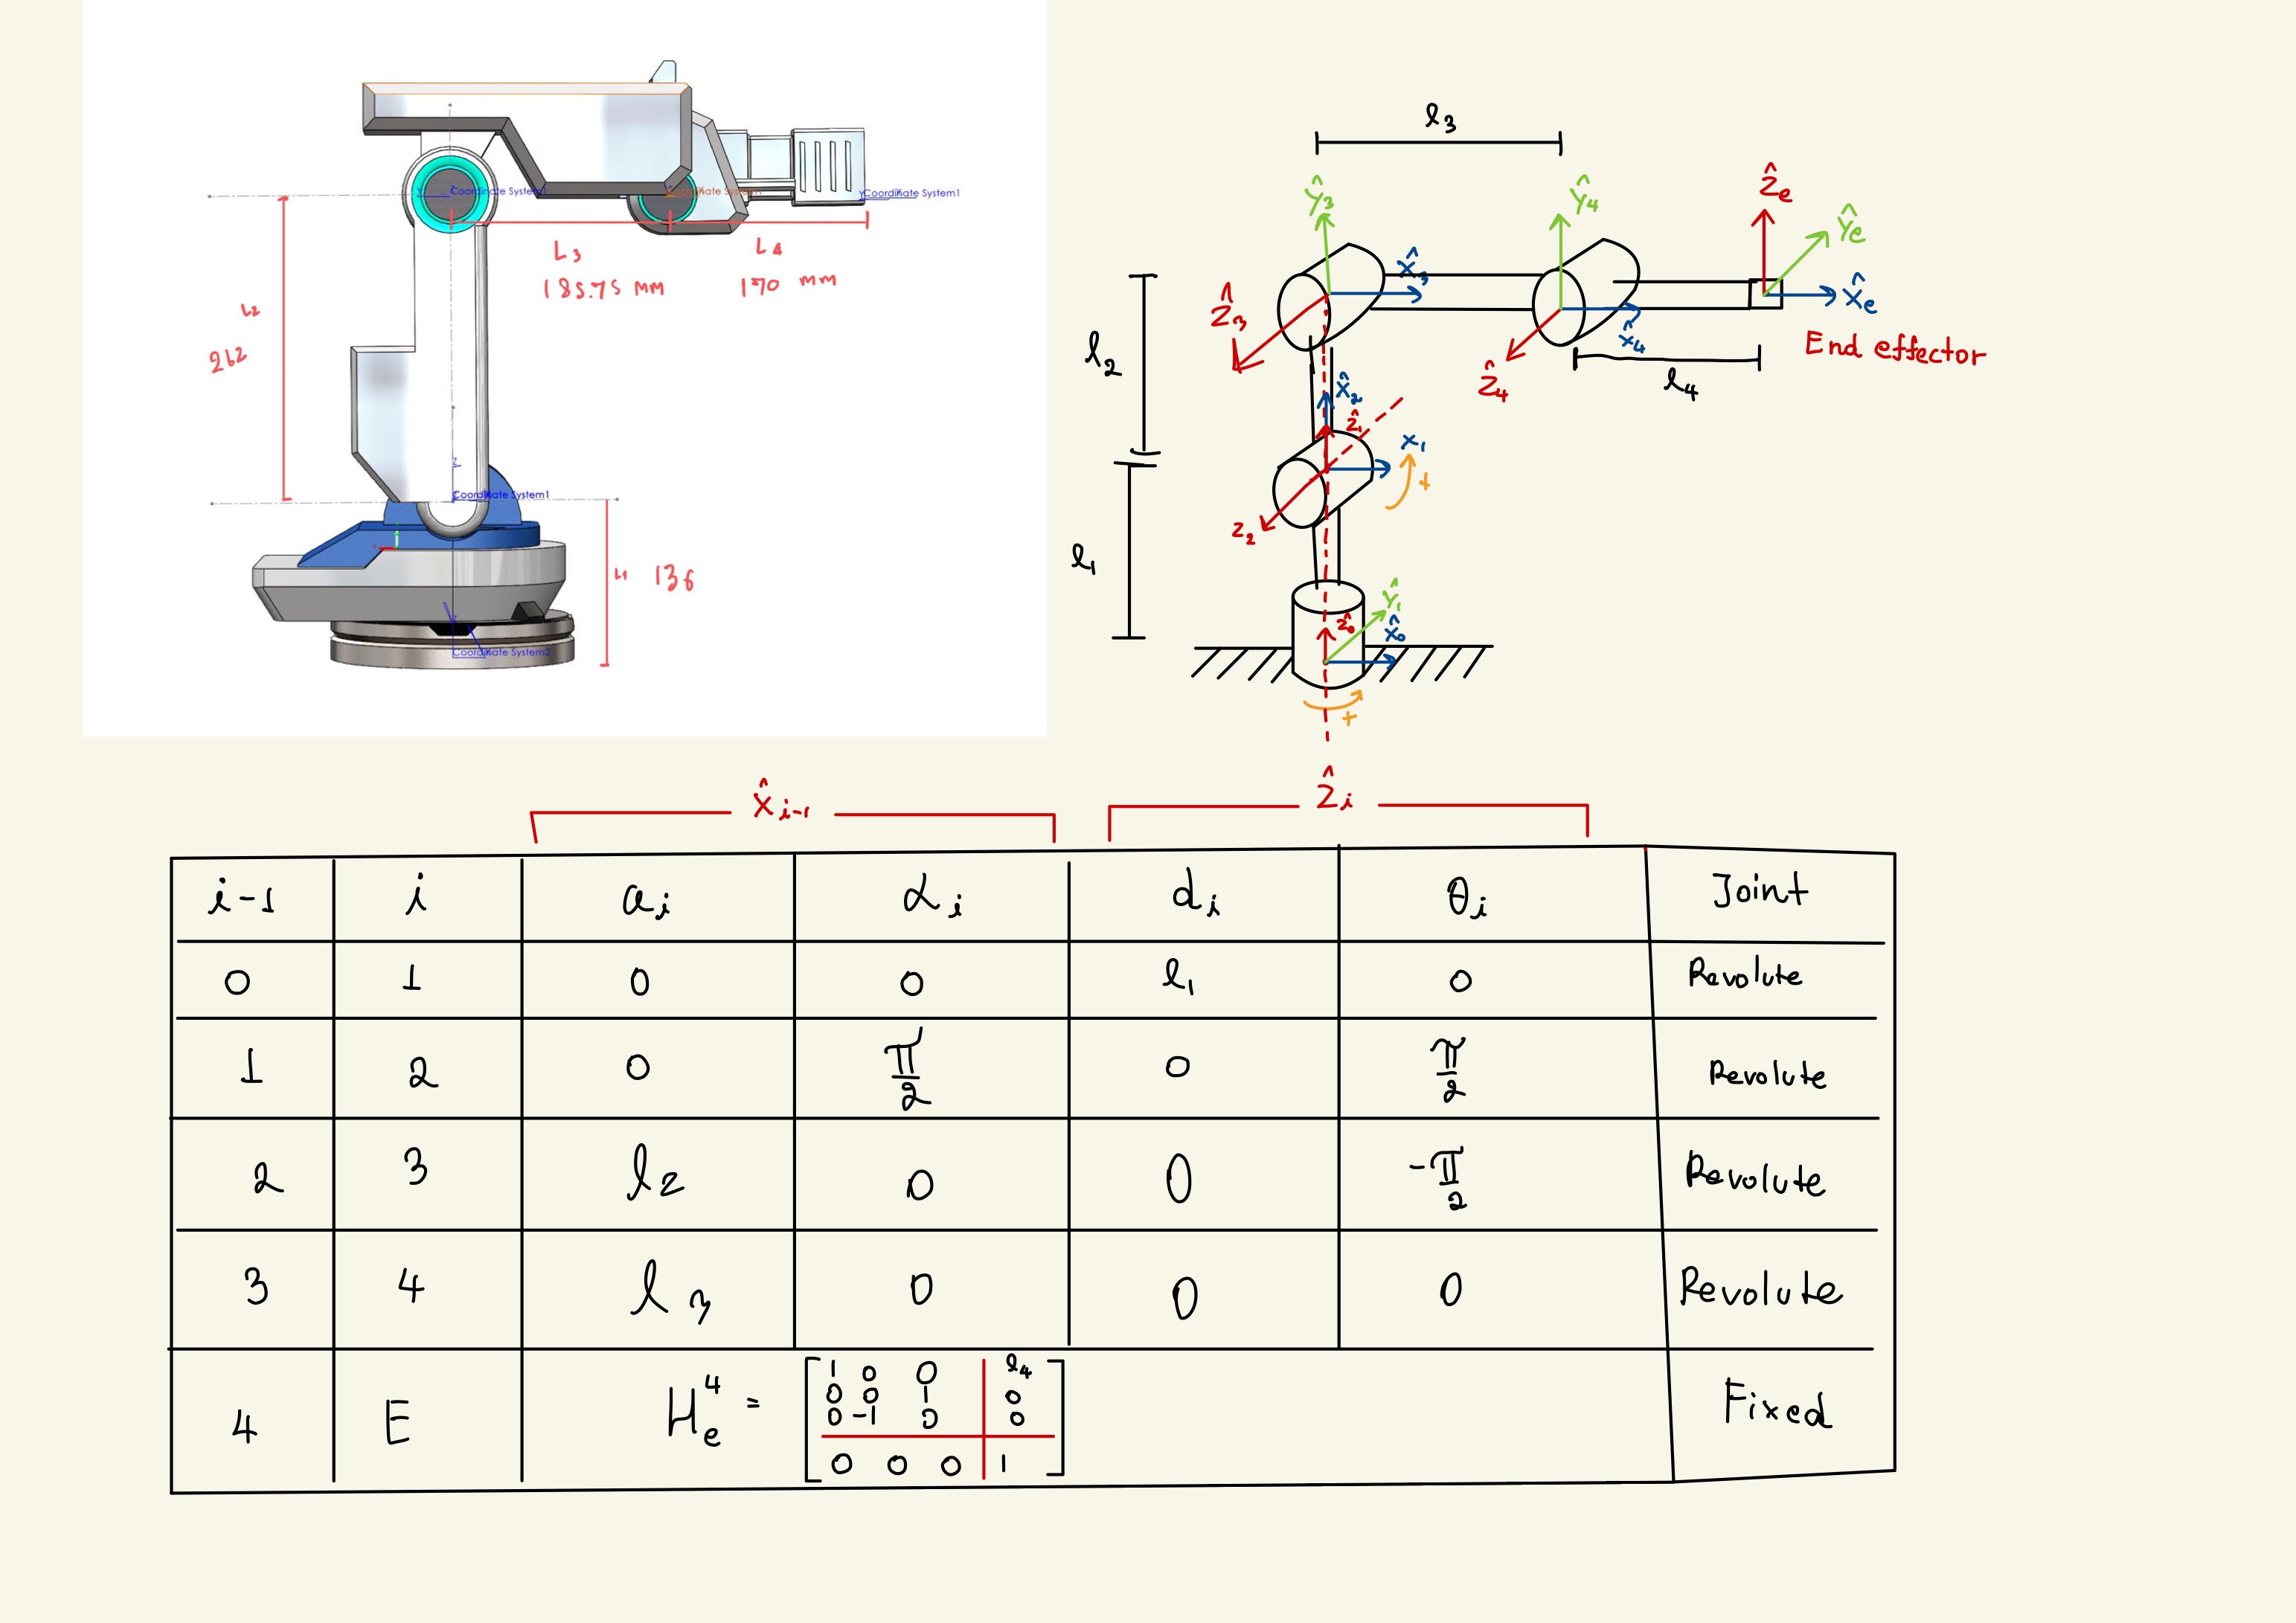 Coordinate System1
Coordinate System1
L3
185.75 mm
L4
170 mm
L2
262
Z
Coordinate System1
L1 136
Z
Coordinate System2
l3
Ŷ3
X̂3
Ẑ3
Ŷ4
X̂4
Ẑ4
Ẑe
Ŷe
X̂e
End effector
l4
l2
X̂2
Ẑ1
X1
+
Z2
l1
Ŷ1
Ẑ0
X̂0
+
X̂i-1
Ẑi
i-1 i ai αi di θi Joint
0 1 0 0 l1 0 Revolute
1 2 0 π/2 0 π/2 Revolute
2 3 l2 0 0 -π/2 Revolute
3 4 l3 0 0 0 Revolute
4 E H4e = Fixed
1 0 0 l4
0 0 1 0
0 -1 0 0
0 0 0 1